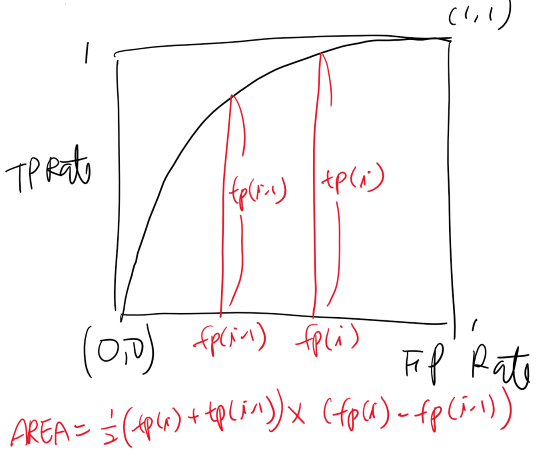 (1,1)
1
TP Rate
tp(i-1)
tp(i)
(0,0)
fp(i-1)
fp(i)
1
FP Rate
AREA = 1/2 (tp(i) + tp(i-1)) × (fp(i) - fp(i-1))